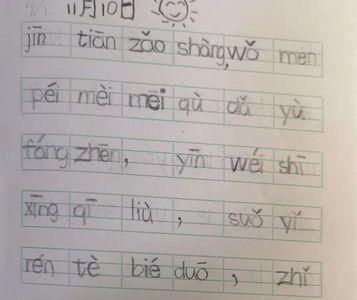 11月10日
jīn tiān zǎo shàng, wǒ men
péi mèi mei qù dǎ yù
fáng zhēn, yīn wéi shī
xīng qī liù, suǒ yǐ
rén tè bié duō, zhǐ